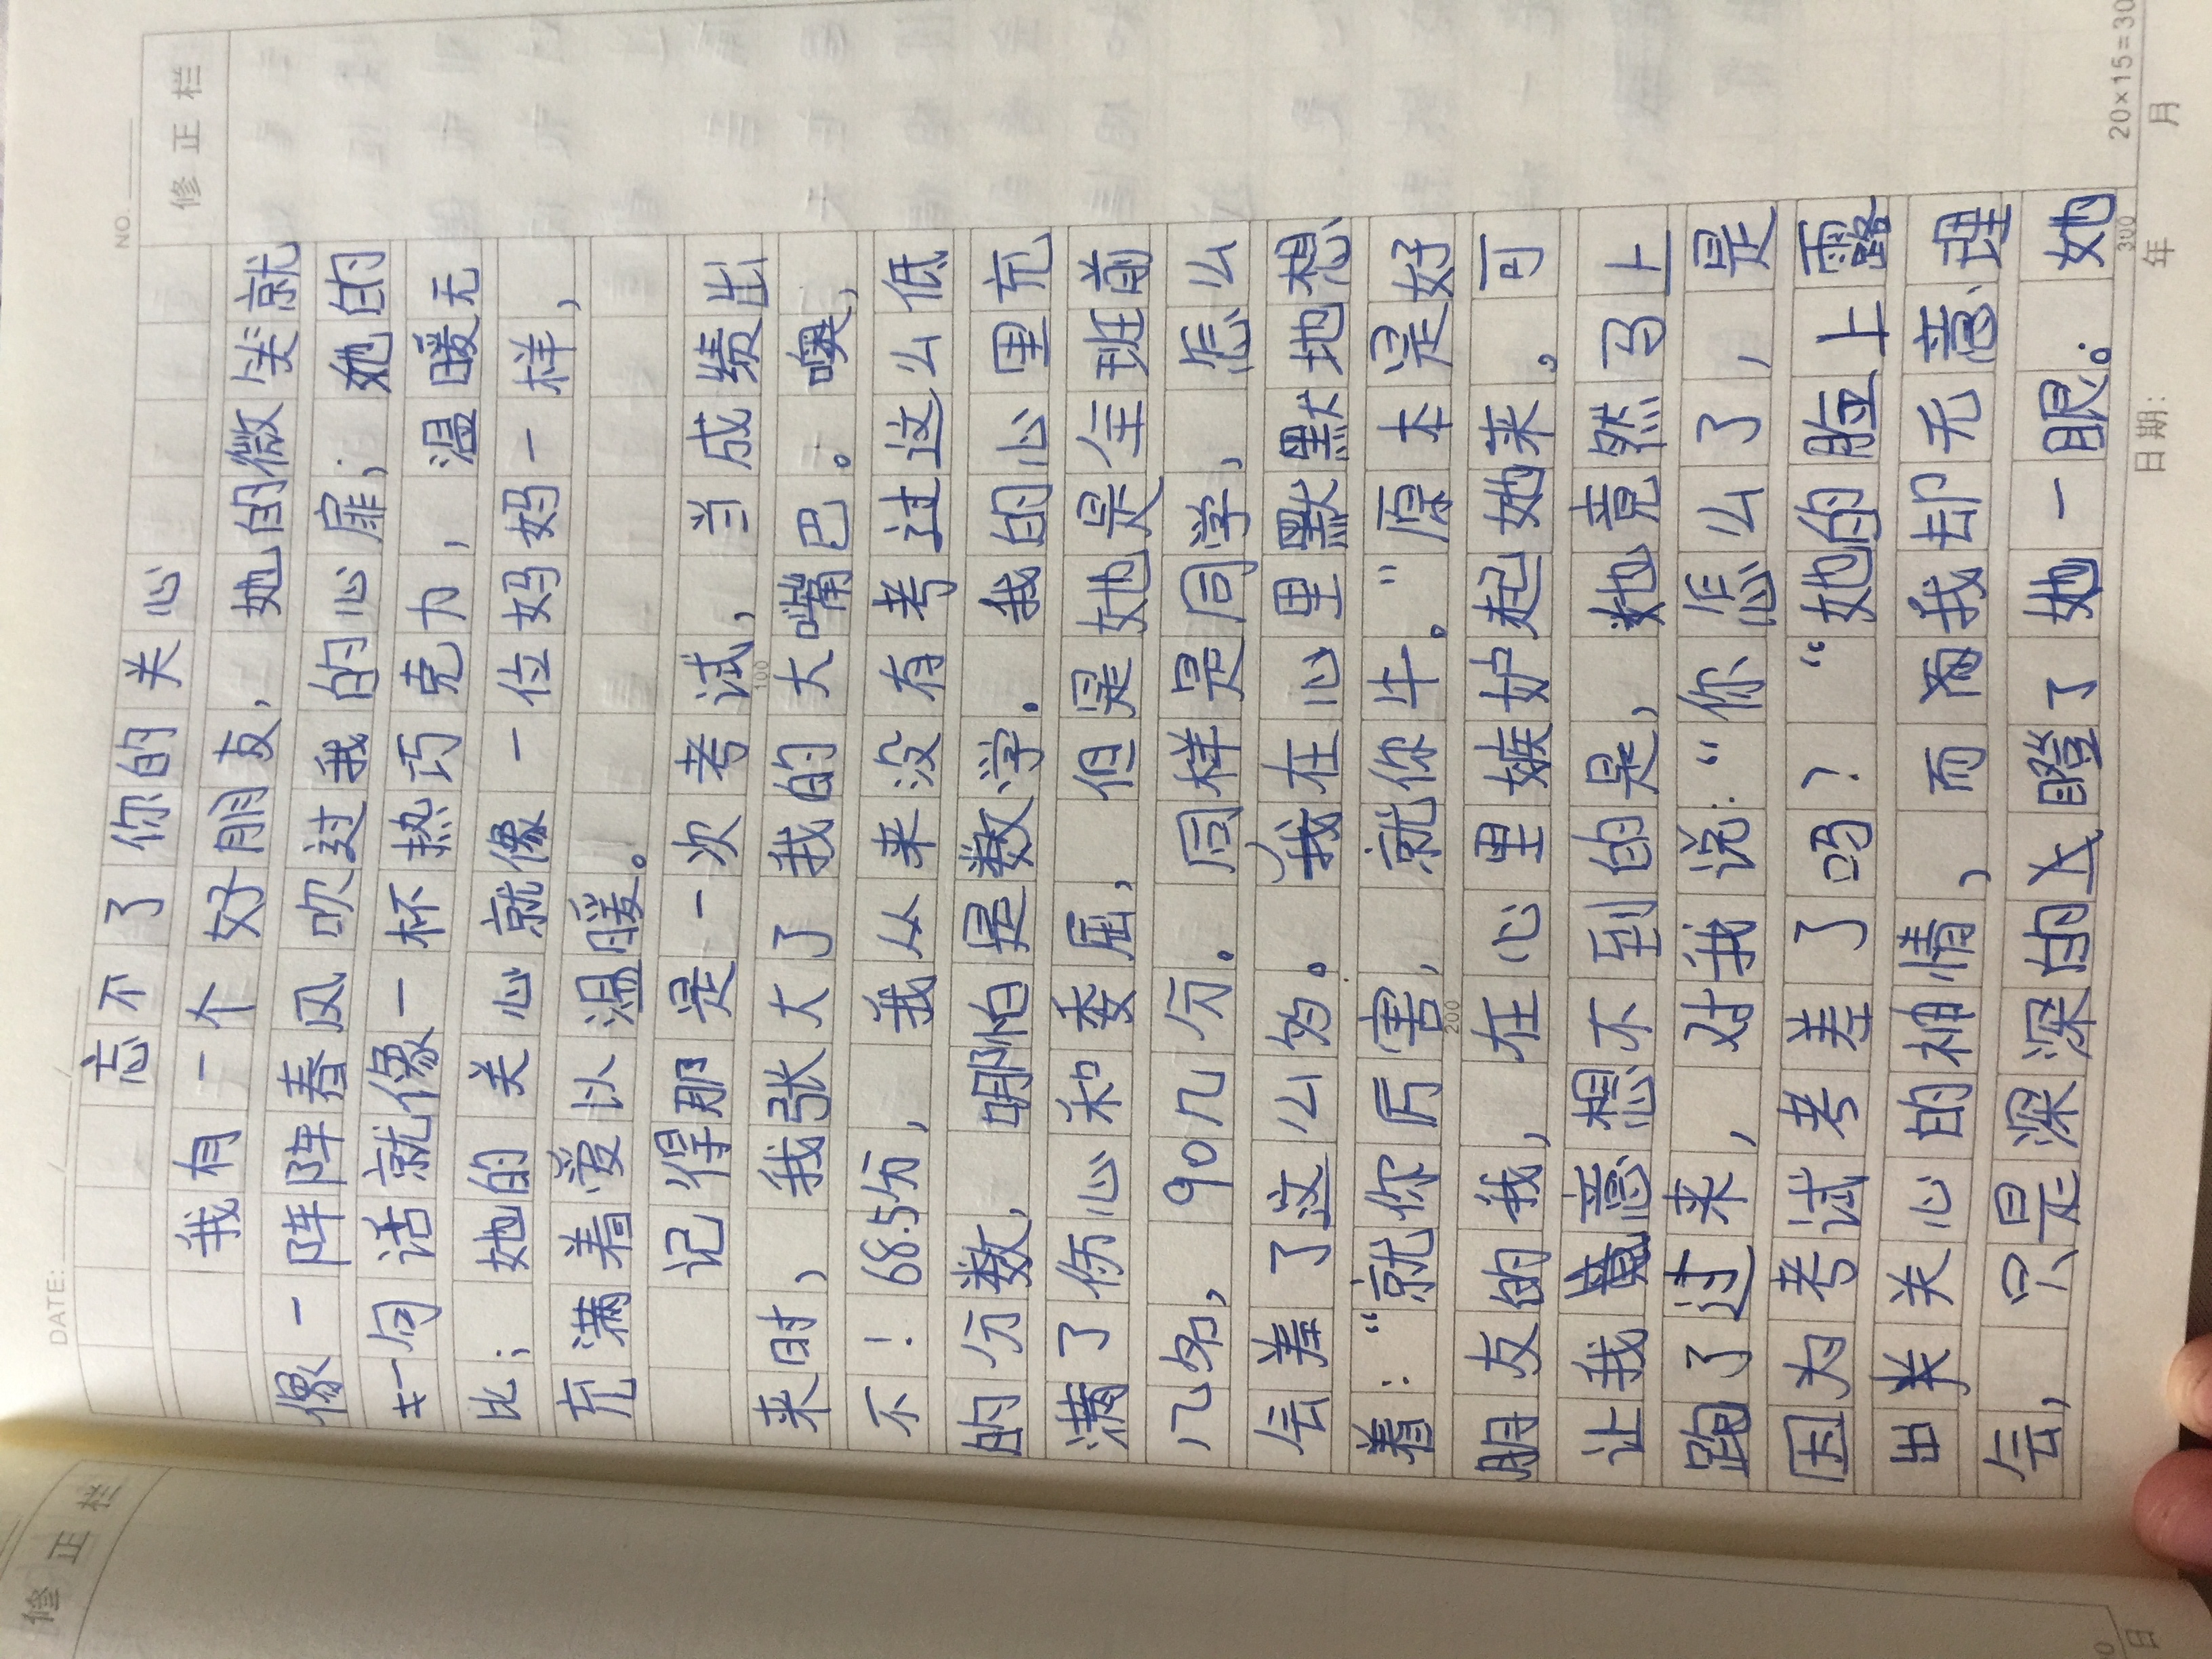 DATE: / /
NO.
修正栏
忘不了你的关心
我有一个好朋友,她的微笑就
像一阵阵春风吹过我的心扉;她的
一句话就像一杯热巧克力,温暖无
比;她的关心就像一位妈妈一样,
充满着爱以温暖。
记得那是一次考试,当成绩出
来时,我张大了我的大嘴巴。噢,
不!68.5分,我从来没有考过这么低
的分数,哪怕是数学。我的心里充
满了伤心和委屈,但是她是全班前
几名,90几分。同样是同学,怎么
会差了这么多。我在心里默默地想
着:“就你厉害,就你牛。”原本是好
朋友的我,在心里嫉妒起她来。可
让我意想不到的是,她竟然马上
跑了过来,对我说:“你怎么了,是
因为考试考差了吗?“她的脸上露
出关心的神情,而我却无意理
会,只是深深的瞪了她一眼。她
100
200
300
20×15=30
日期: 年 月
修正栏
日